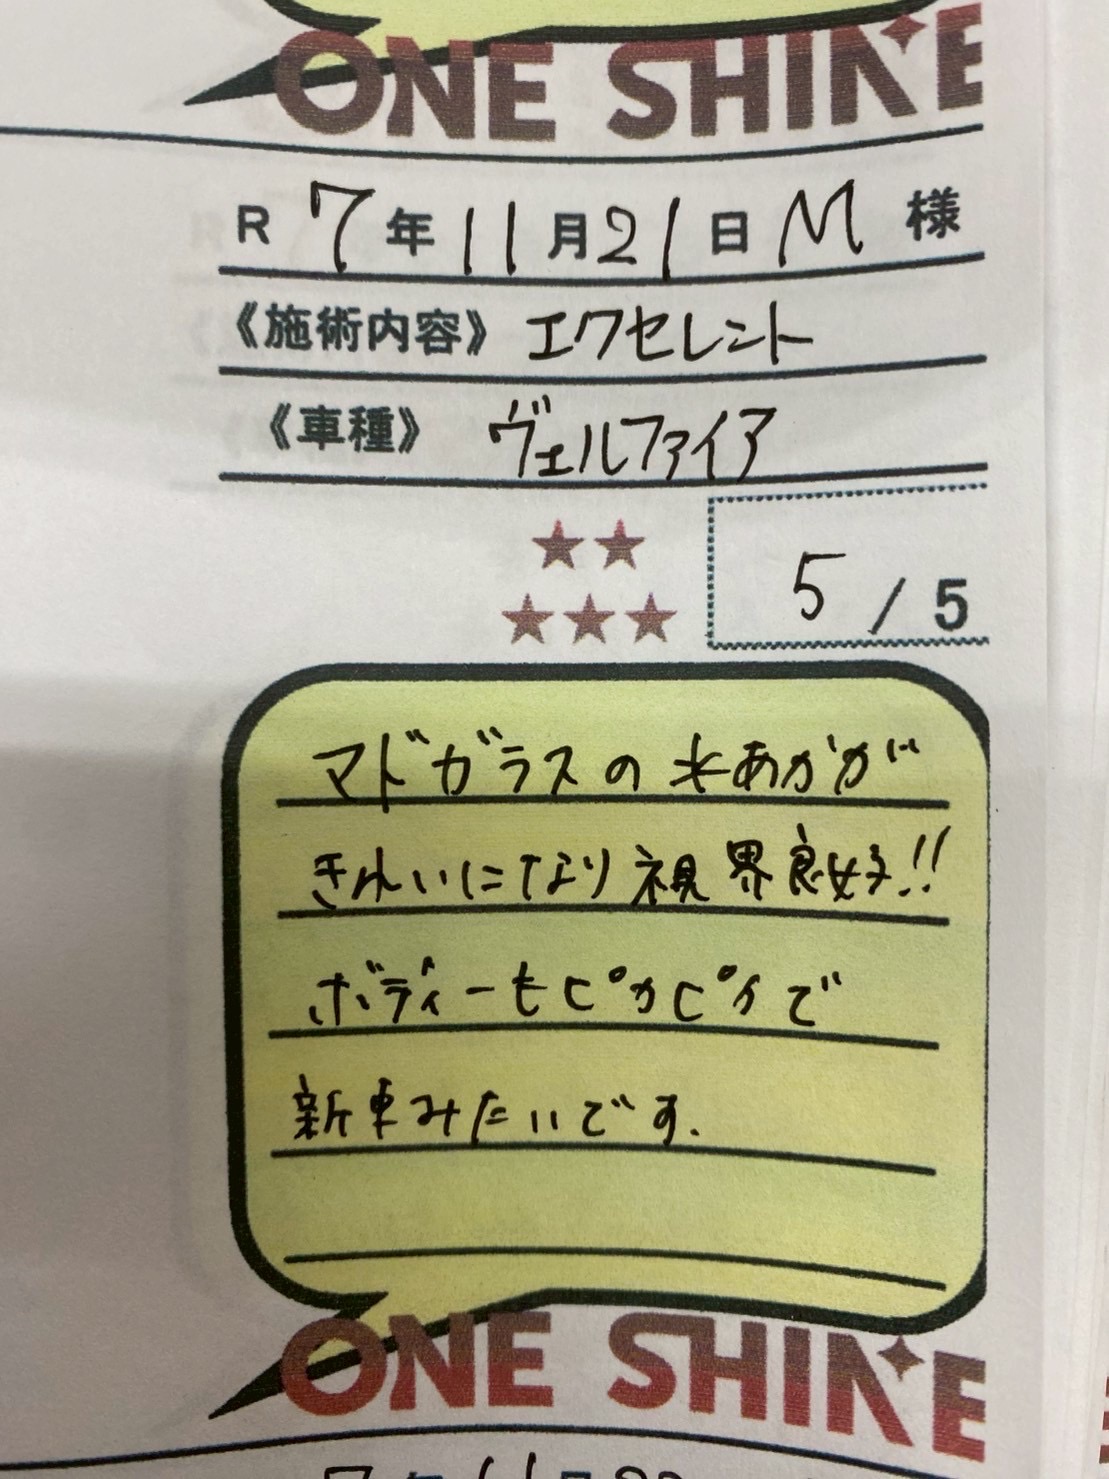 ONE SHINE
R 7年11月21日 M 様
《施術内容》 エクセレント
《車種》 ヴェルファイア
★★
★★★
5/5
マドガラスの水あかが
きれいになり視界良好!!
ボディーもピカピカで
新車みたいです.
ONE SHINE